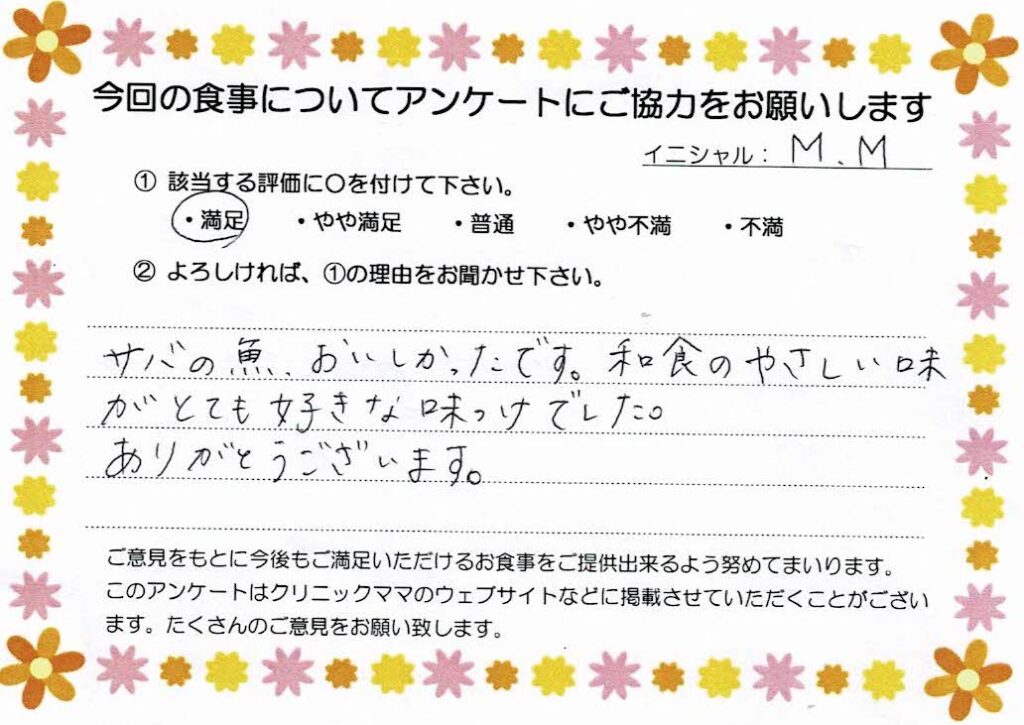 今回の食事についてアンケートにご協力をお願いします
イニシャル： M.M
① 該当する評価に〇を付けて下さい。
・満足 ・やや満足 ・普通 ・やや不満 ・不満
② よろしければ、①の理由をお聞かせ下さい。
サバの魚、おいしかったです。和食のやさしい味
がとても好きな味つけでした。
ありがとうございます。
ご意見をもとに今後もご満足いただけるお食事をご提供出来るよう努めてまいります。
このアンケートはクリニックママのウェブサイトなどに掲載させていただくことがござい
ます。たくさんのご意見をお願い致します。